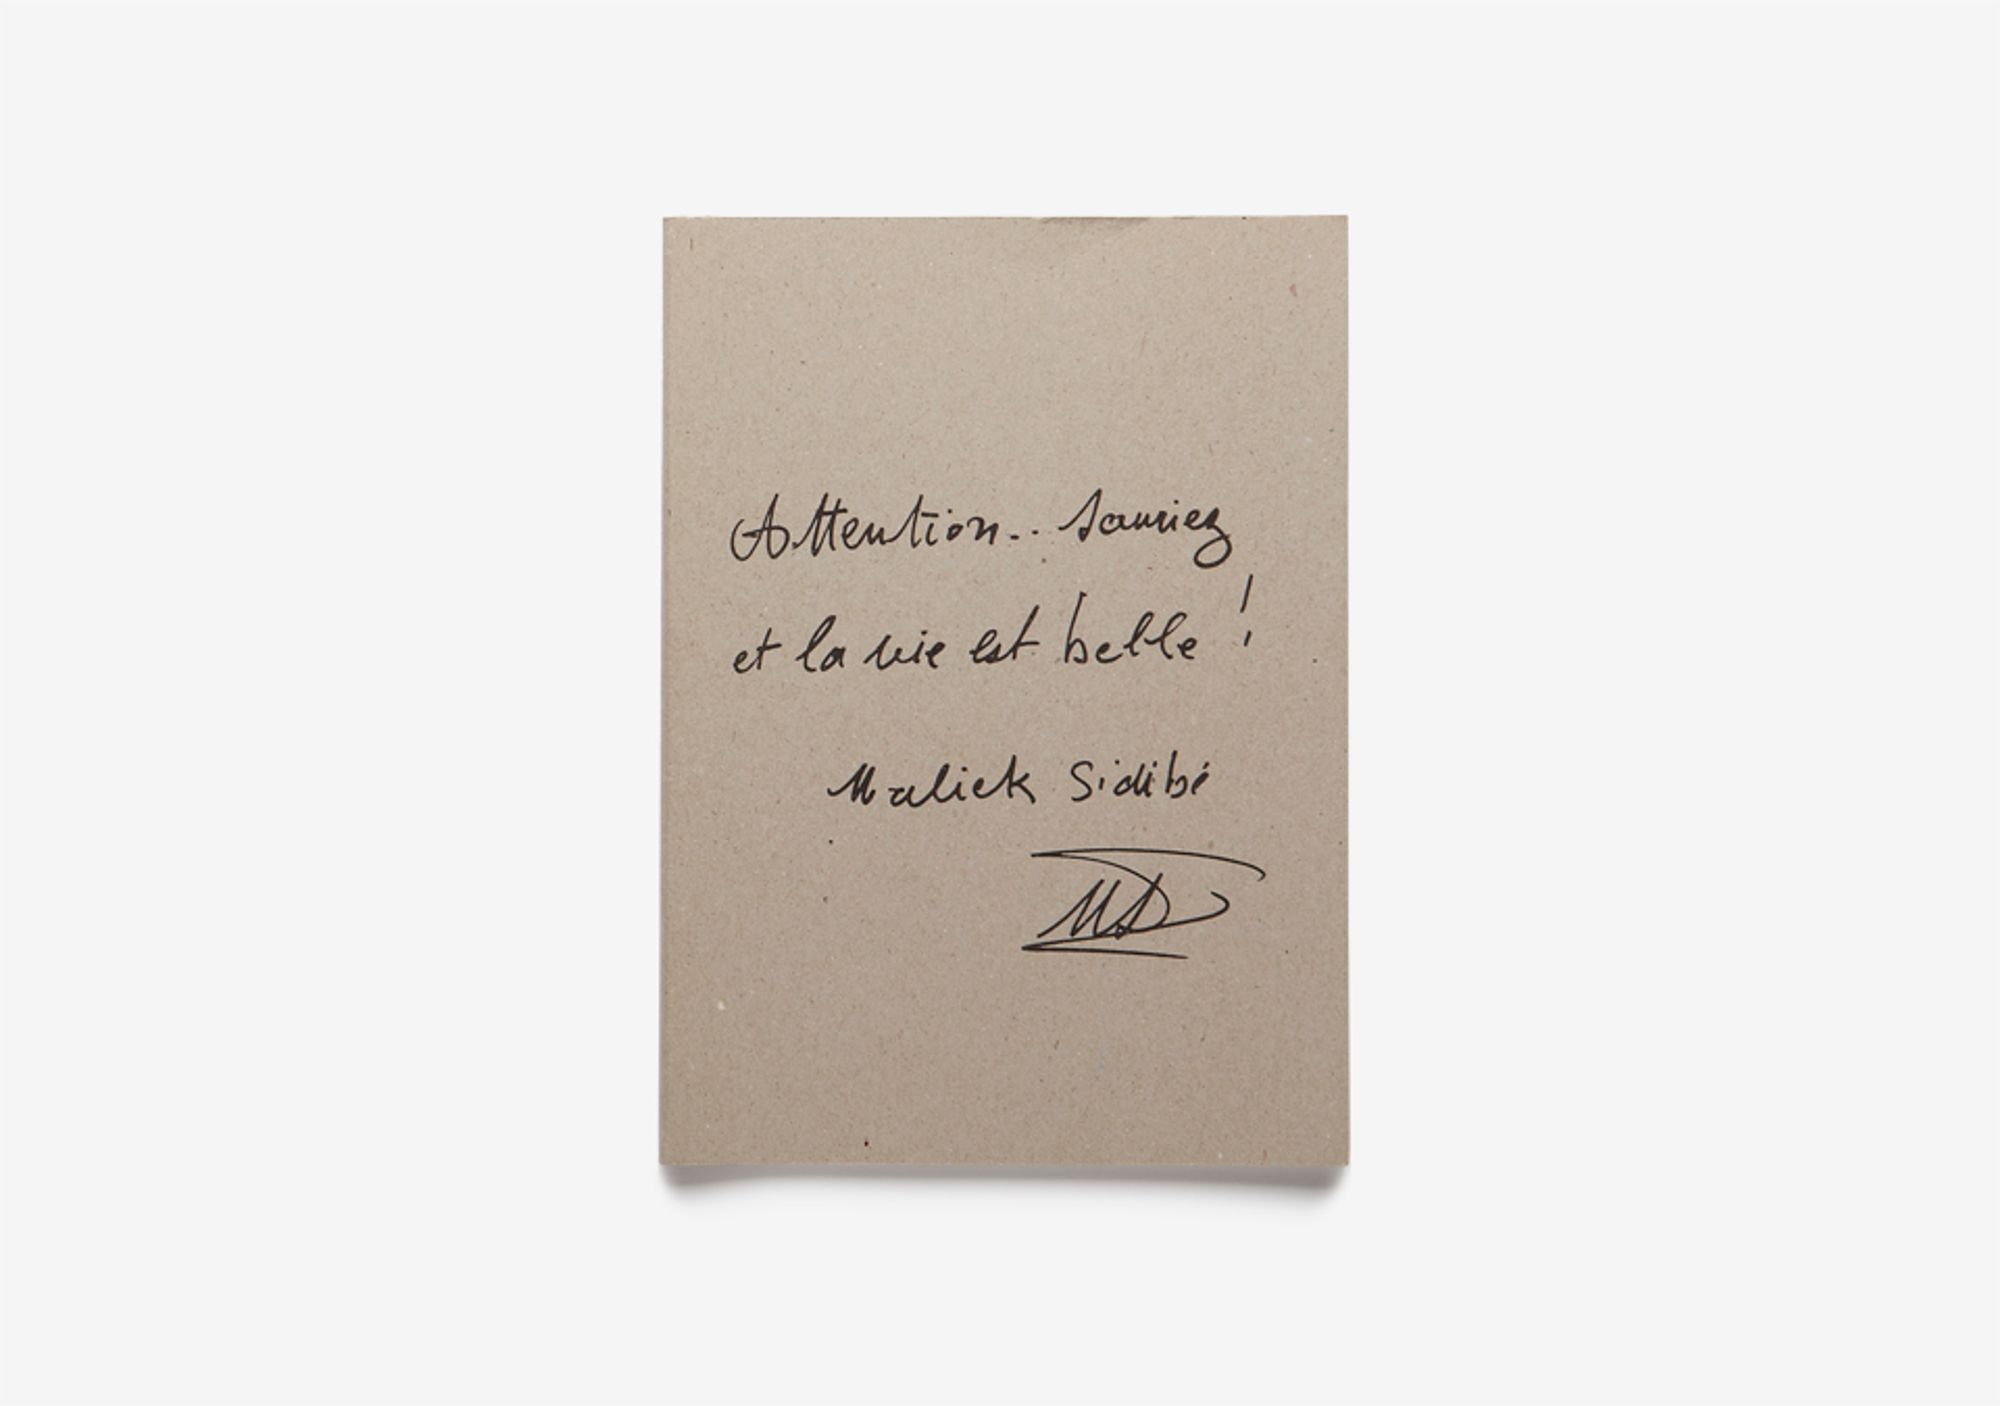 Attention.. souriez
et la vie est belle !
Malick Sidibé